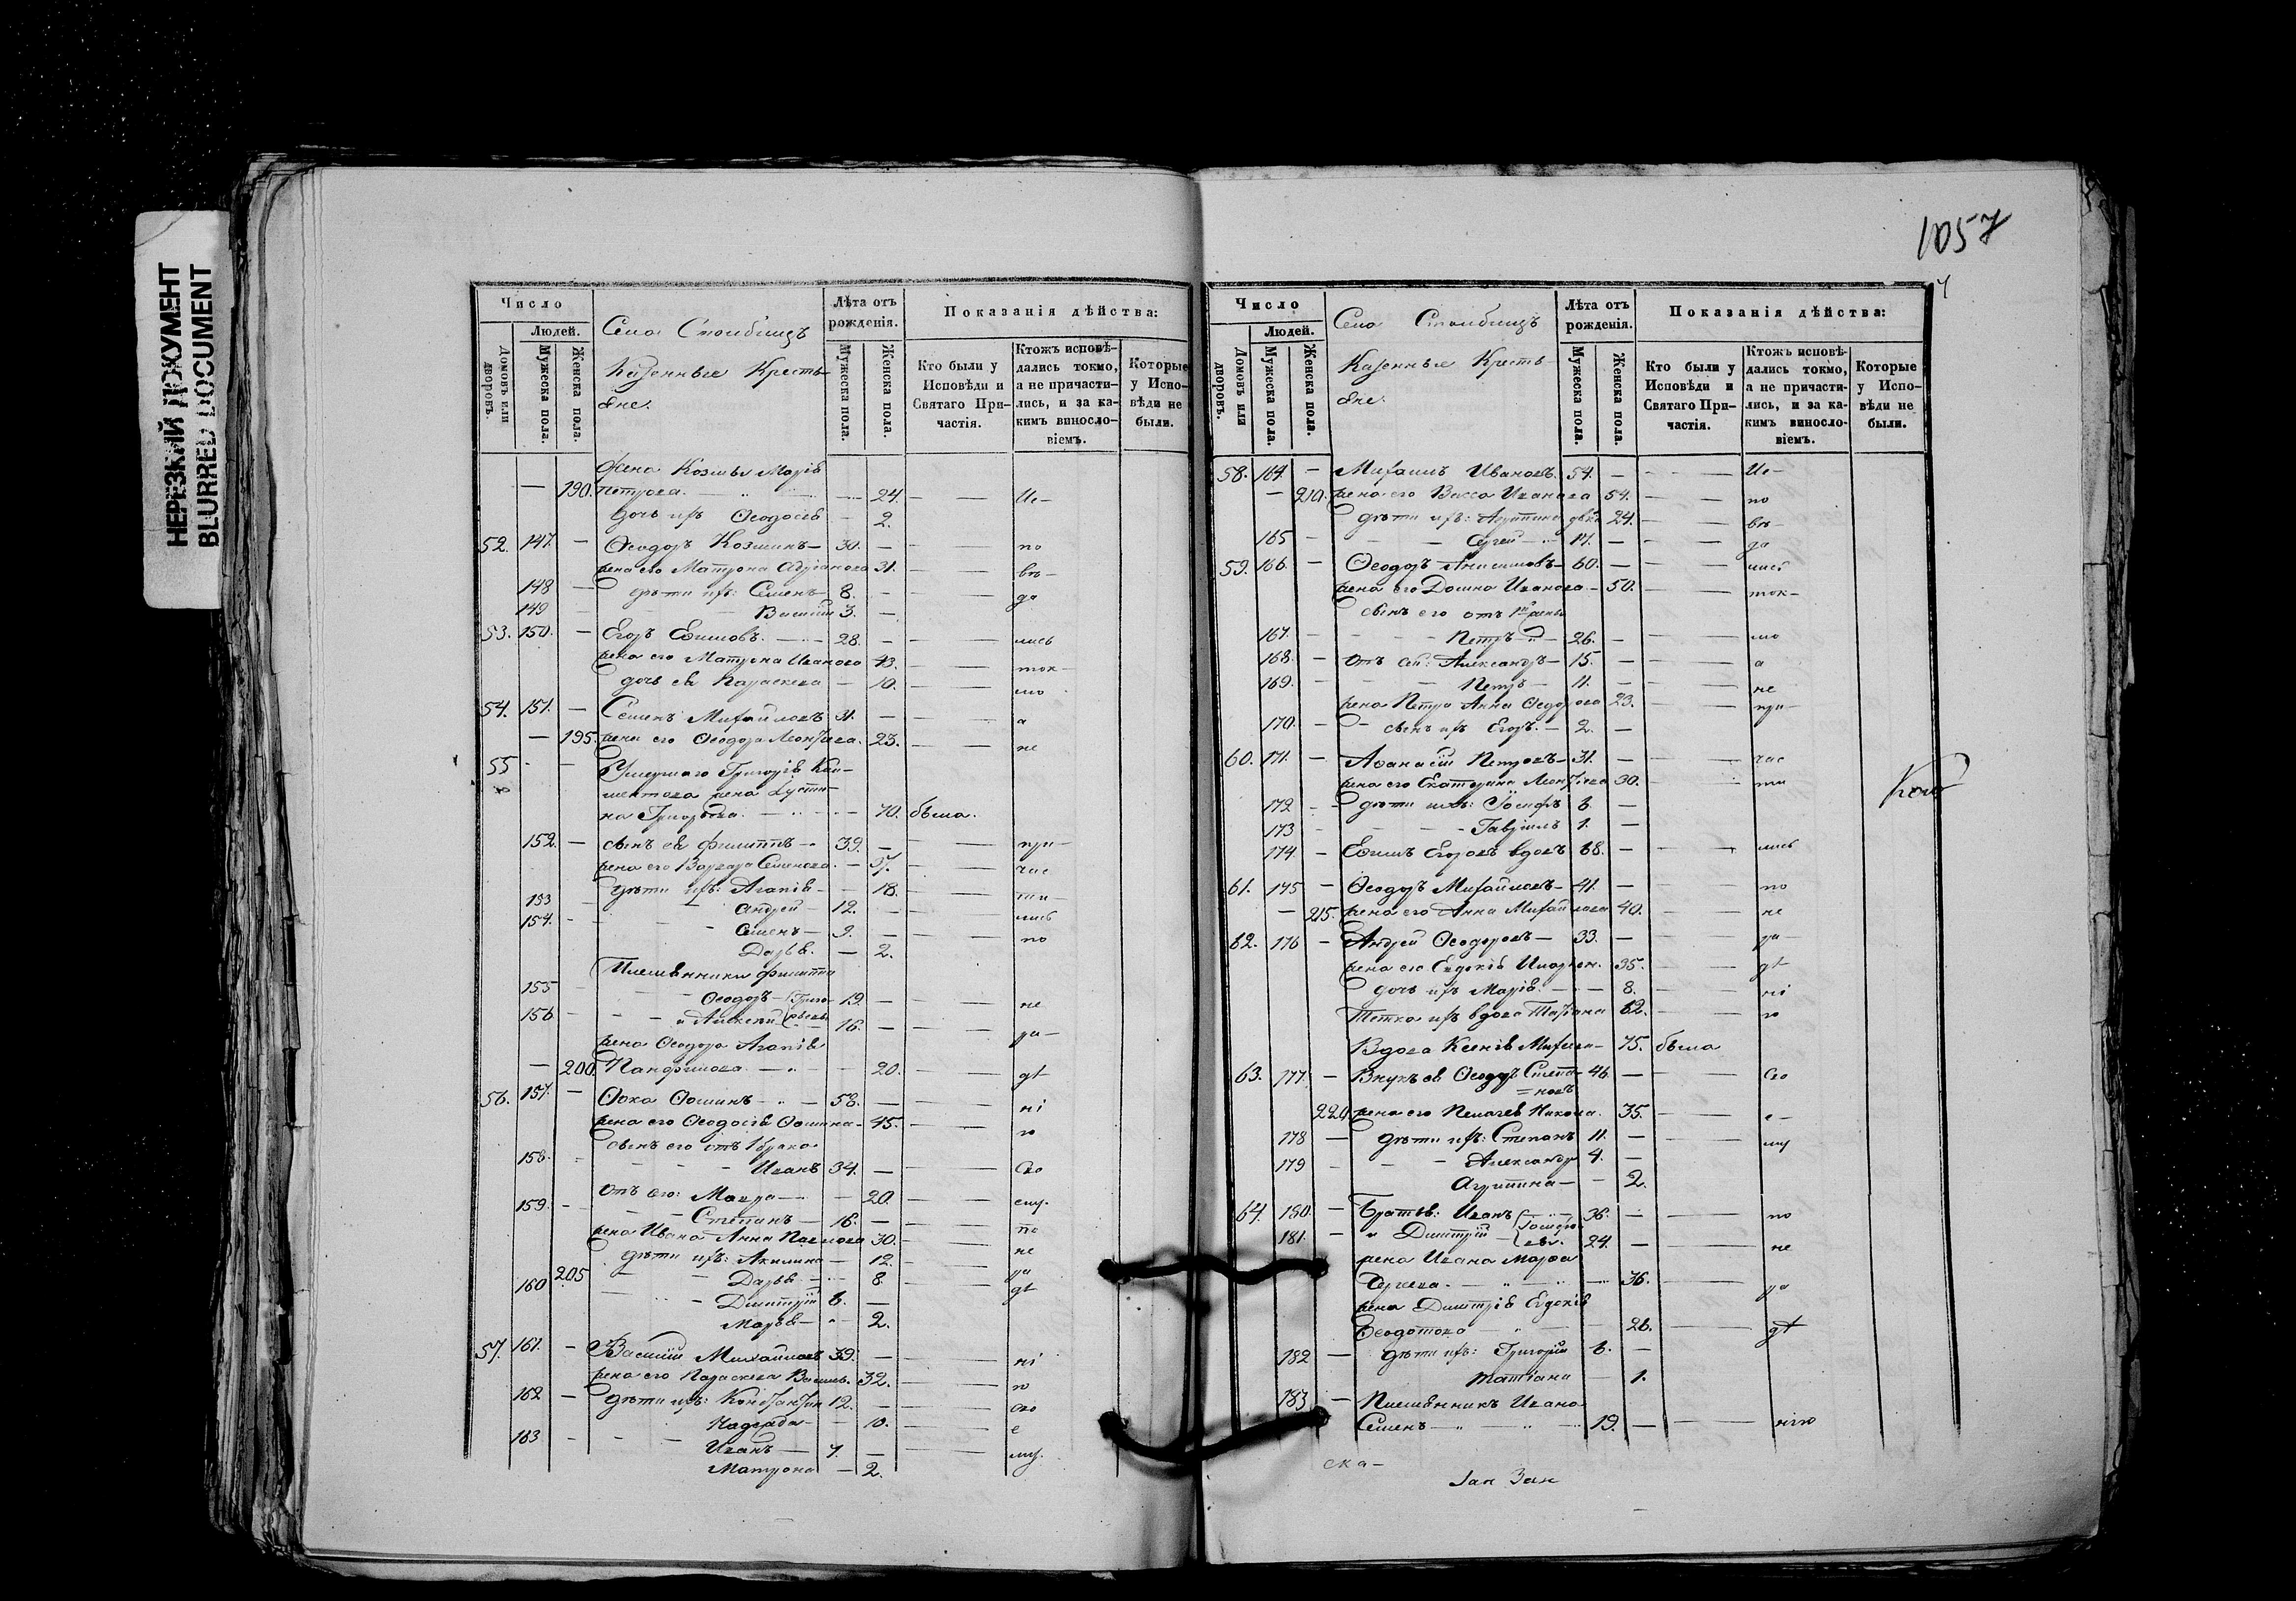 НЕРЕЗКИЙ ДОКУМЕНТ
BLURRED DOCUMENT
1057
Число
Людей.
Домовъ или дворовъ.
Мужеска пола.
Женска пола.
Казенные Кресть-
яне.
Лѣта отъ рожденія.
Мужеска пола.
Женска пола.
Показанія дѣйства:
Кто были у Исповѣди и Святаго При-частія.
Ктожъ исповѣ-дались токмо, а не причасти-лись, и за ка-кимъ винословіемъ.
Которые у Испо-вѣди не были.
жена Козмы Марія
190. Петрова. 24. Ис-
дочь ихъ Ѳеодосія 2.
52. 147. Ѳеодоръ Козминъ 30. по
жена его Матрона Адріанова 31. вѣ-
148 дѣти ихъ: Семенъ 8. да
149 Василій 3.
53. 150. Егоръ Ефимовъ. 28. лись
жена его Матрона Иванова 43. ток-
дочь ея Параскева 10. мо
54. 151. Семенъ Михайловъ 31. а
195. жена его Ѳеодора Леонтьева. 23. не
55 Умершаго Григорія Кли-
ментова жена Іусти-
на Григорьева. 70. была.
152. сынъ ея Филиппъ 39. при-
жена его Варвара Семенова. 37. час
дѣти ихъ: Агапія 18. ти-
153 Андрей 12. лись
154. Семенъ 9. по
Дарья. 2.
Племянники Филиппа
155 Ѳеодоръ Григо- 19. не
156 и Алексѣй рьевы 16. ра-
жена Ѳеодора Агапія
200. Панфилова 20. дѣ
56. 157. Ѳока Ѳоминъ 58. ні
жена его Ѳеодосія Ѳомина 45. ю
сынъ его отъ 1 брака
158. Иванъ 34. Сво
отъ сея: Мавра 20. ему.
159. Степанъ 16. по
жена Ивана Анна Павлова 30. не
дѣти ихъ: Акилина 12. ра
205 Дарья 8 дѣ
160 Димитрій 6.
Марья 2.
57. 161. Василій Михайловъ 39. ні
жена его Параскева Васильева. 32. ю
162 дѣти ихъ: Константинъ 12. сво
Надежда 10. е
163 Иванъ 7. му.
Матрона 2.
Число
Людей.
Домовъ или дворовъ.
Мужеска пола.
Женска пола.
Казенные Кресть
яне.
Лѣта отъ рожденія.
Мужеска пола.
Женска пола.
Показанія дѣйства:
Кто были у Исповѣди и Святаго При-частія.
Ктожъ исповѣ-дались токмо, а не причасти-лись, и за ка-кимъ винословіемъ.
Которые у Испо-вѣди не были.
58. 164. Михаилъ Ивановъ. 54. Ис-
210. жена его Васса Иванова 54. по
дѣти ихъ: Агрипина дѣв. 24. вѣ-
165 Сергей 17. да
59. 166. Ѳеодоръ Анисимовъ 60. лись
жена его Домна Иванова 50. ток-
сынъ его отъ 1й жены
167. Петръ 26. мо
168. отъ сей: Александръ 15. а
169. Петръ 11. не
жена Петра Анна Ѳедорова 23. при-
170. сынъ ихъ Егоръ. 2.
60. 171. Аѳанасій Петровъ 31. час
жена его Екатерина Леонтьева 30. ти
172 дѣти ихъ: Іосифъ 6.
173 Гавріилъ 1.
174. Ефимъ Егоровъ вдовъ 68. лись
61. 175 Ѳеодоръ Михайловъ 41. по
215. жена его Анна Михайлова 40. не
62. 176 Андрей Ѳеодоровъ 33. ра-
жена его Евдокія Иларіон. 35. дѣ
дочь ихъ Марія. 8. ні
Тетка ихъ вдова Татіана 62. ю
Вдова Ксенія 75. была
63. 177. Внукъ ея Ѳеодоръ Степа- 46. Сво
=новъ
220. жена его Пелагея 35. е-
178 дѣти ихъ: Степанъ 11. му
179 Александръ 4.
Агрипина 2.
64. 180 Братья: Иванъ 36. по
181. и Димитрій 24. не
жена Ивана Марѳа
Сергева. 36. ра
жена Димитрія Евдокія
Ѳеодотова 26. дѣ
182 дѣти ихъ: Григорій 6.
Татіана 1.
183 Племянникъ Ивана
Семенъ 19. нію